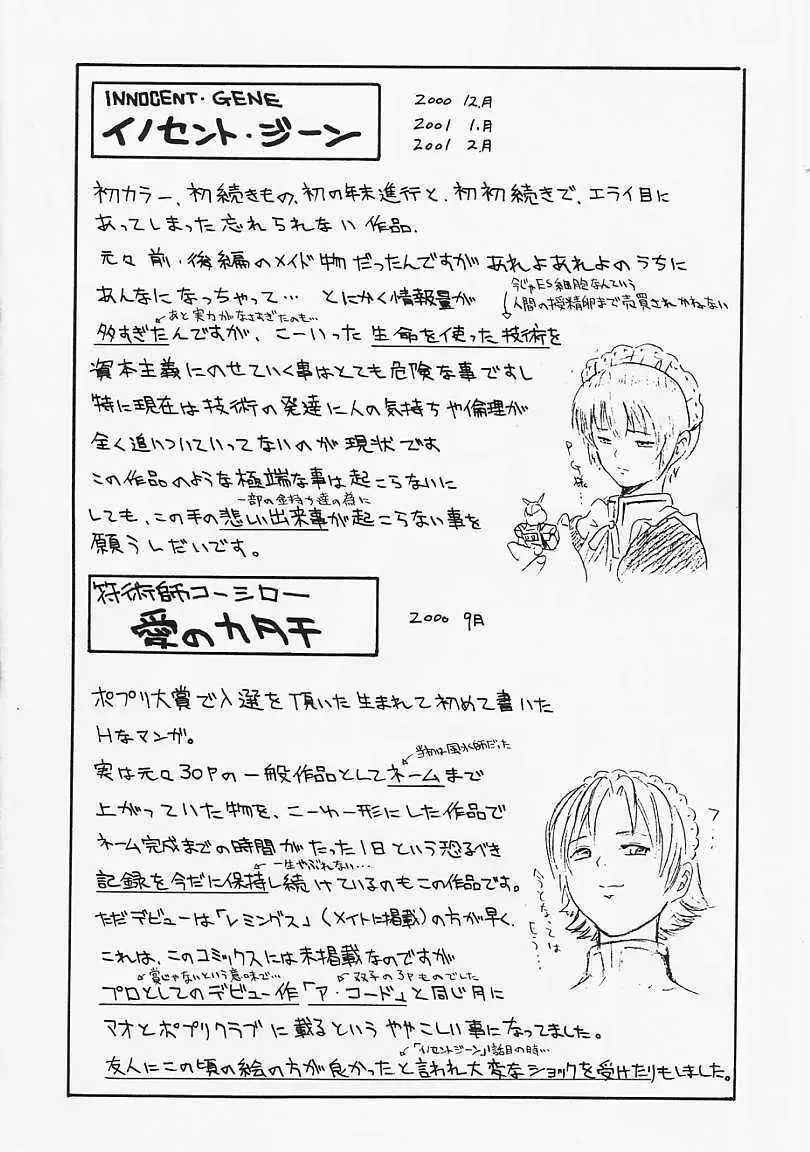 INNOCENT・GENE
イノセント・ジーン
2000 12月
2001 1月
2001 2月
初カラー、初続きもの、初の年末進行と、初初続きで、エライ目に
あってしまった忘れられない作品.
元々前・後編のメイド物だったんですがあれよあれよのうちに
今じゃES細胞なんていう
人間の授精卵まで売買されかねない
あんなになっちゃって… とにかく情報量が
あと実力がなさすぎたのも…
多すぎたんですが、こーいった生命を使った技術を
資本主義にのせていく事はとても危険な事ですし
特に現在は技術の発達に人の気持ちや倫理が
全く追いついていってないのが現状です
この作品のような極端な事は起こらないに
一部の金持ち達の為に
しても、この手の悲しい出来事が起こらない事を
願うしだいです。
P.G様…
符術師コーシロー
愛のカタチ
2000 9月
ポプリ大賞で入選を頂いた生まれて初めて書いた
Hなマンガ。
当初は風水師だった
実は元々30Pの一般作品としてネームまで
上がっていた物を、こーゆー形にした作品で
ネーム完成までの時間がたった1日という恐るべき
一生やぶれない…
記録を今だに保持し続けているのもこの作品です。
ただデビューは「レミングス」(メイトに掲載)の方が早く、
これは、このコミックスには未掲載なのですが
賞じゃないという意味で…
双子の3Pものでした
プロとしてのデビュー作「ア・コード」と同じ月に
マオとポプリクラブに載るというややこしい事になってました。
「イノセントジーン」1話目の時…
友人にこの頃の絵の方が良かったと言われ大変なショックを受けたりもしました。
フ…
今となっては
もう…